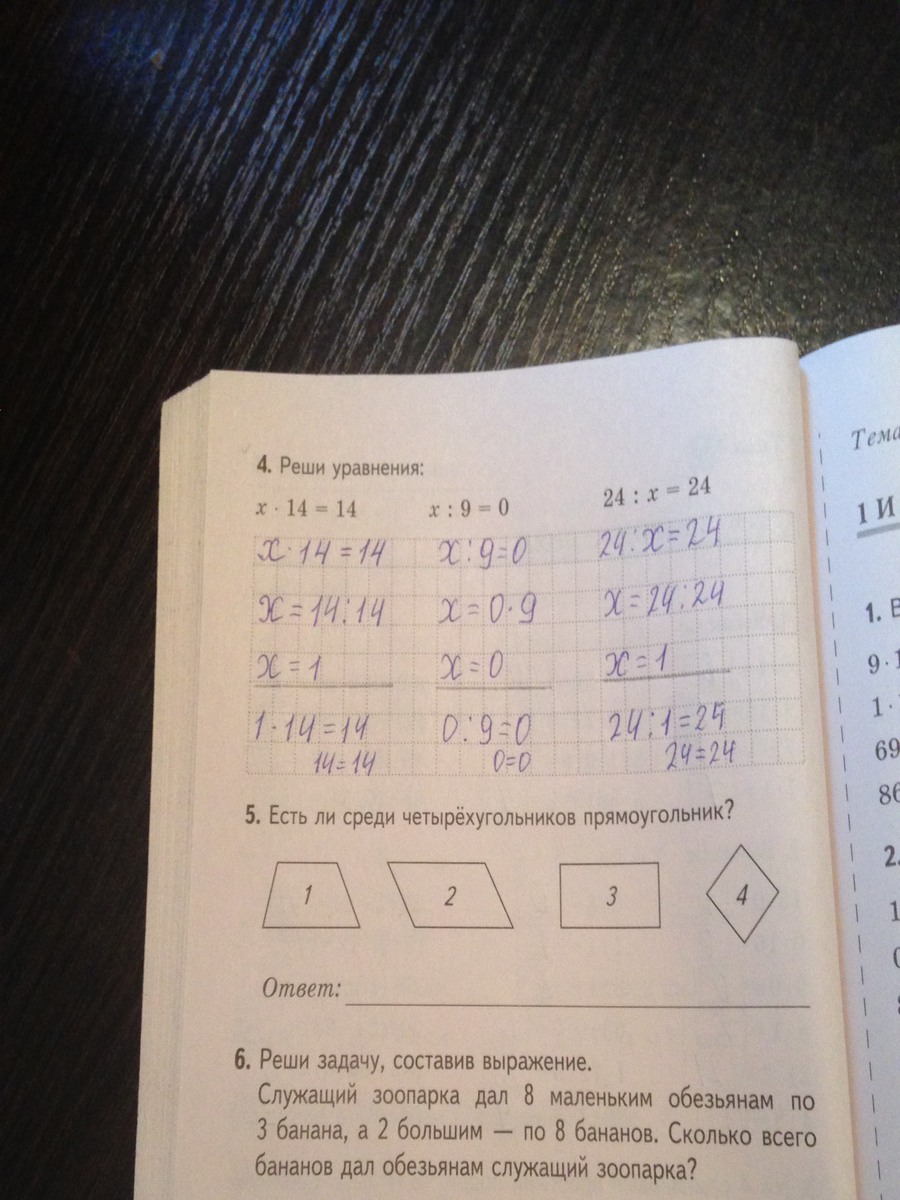 4. Реши уравнения:
x · 14 = 14 x : 9 = 0 24 : x = 24
x · 14 = 14 x : 9 = 0 24 : x = 24
x = 14 : 14 x = 0 · 9 x = 24 : 24
x = 1 x = 0 x = 1
1 · 14 = 14 0 : 9 = 0 24 : 1 = 24
14 = 14 0 = 0 24 = 24
5. Есть ли среди четырёхугольников прямоугольник?
1 2 3 4
Ответ:
6. Реши задачу, составив выражение.
Служащий зоопарка дал 8 маленьким обезьянам по
3 банана, а 2 большим — по 8 бананов. Сколько всего
бананов дал обезьянам служащий зоопарка?
Тема
1 И
1. В
9 · 1
1 ·
69
86
2.
1
0